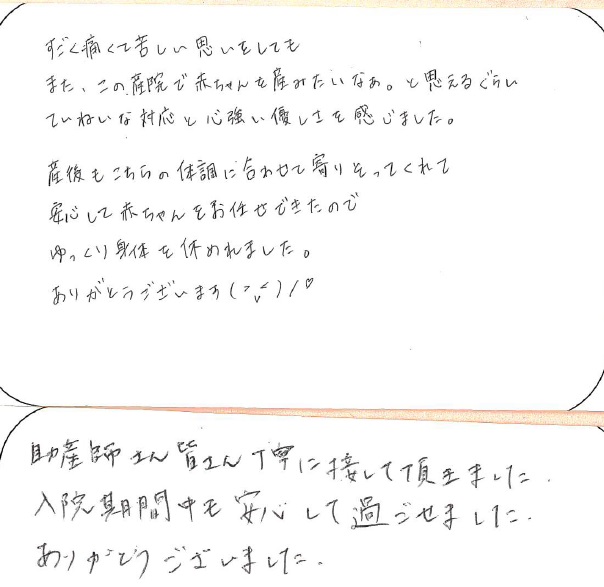 すごく痛くて苦しい思いをしても
また、この産院で赤ちゃんを産みたいなぁ。と思えるぐらい
ていねいな対応と心強い優しさを感じました。
産後もこちらの体調に合わせて寄りそってくれて
安心して赤ちゃんをお任せできたので
ゆっくり身体を休めれました。
ありがとうございます(>ᵥ<)/♡
助産師さん皆さん丁寧に接して頂きました.
入院期間中も安心して過ごせました.
ありがとうございました.